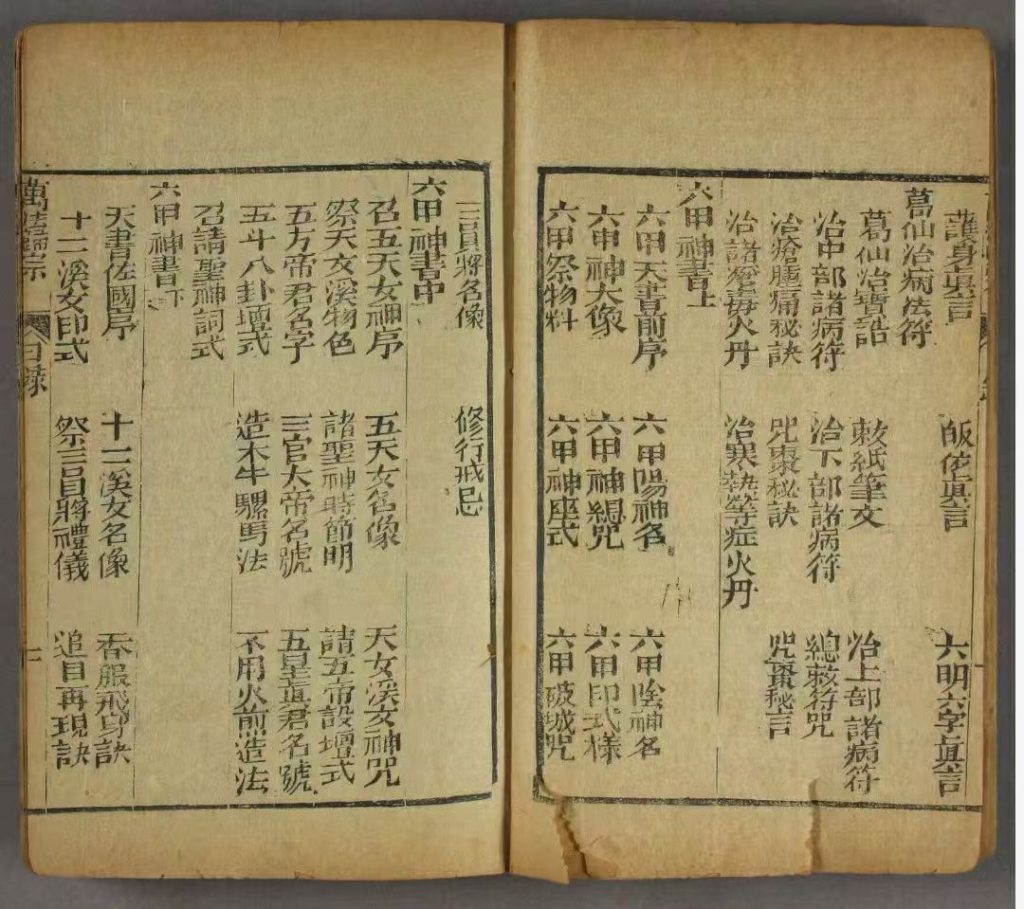 護身眞言 皈依眞言 六明六字眞言
葛仙治病法符
葛仙治寶誥 敕紙筆文 治上部諸病符
治中部諸病符 治下部諸病符 總敕符咒
治瘡腫痛秘訣 咒棗秘訣 咒棗秘言
治諸瘡毒火丹 治寒熱等症火丹
六甲神書上
六甲天書前序 六甲陽神名 六甲陰神名
六甲神大像 六甲神總咒 六甲印式樣
六甲祭物料 六甲神座式 六甲破城咒
三員將名像 修行戒忌
六甲神書中
召五天女神序 五天女名像 天女溪女神咒
祭天女溪物色 諸聖神時節明 請五帝設壇式
五方帝君名字 三官大帝名號 五星眞君名號
五斗八卦壇式 造木牛騾馬法 不用火煎造法
召請聖神詞式
六甲神書下
天書佐國序 十二溪女名像 香服飛身訣
十二溪女印式 祭三員將禮儀 追目再現訣
萬法歸宗 目錄 十一